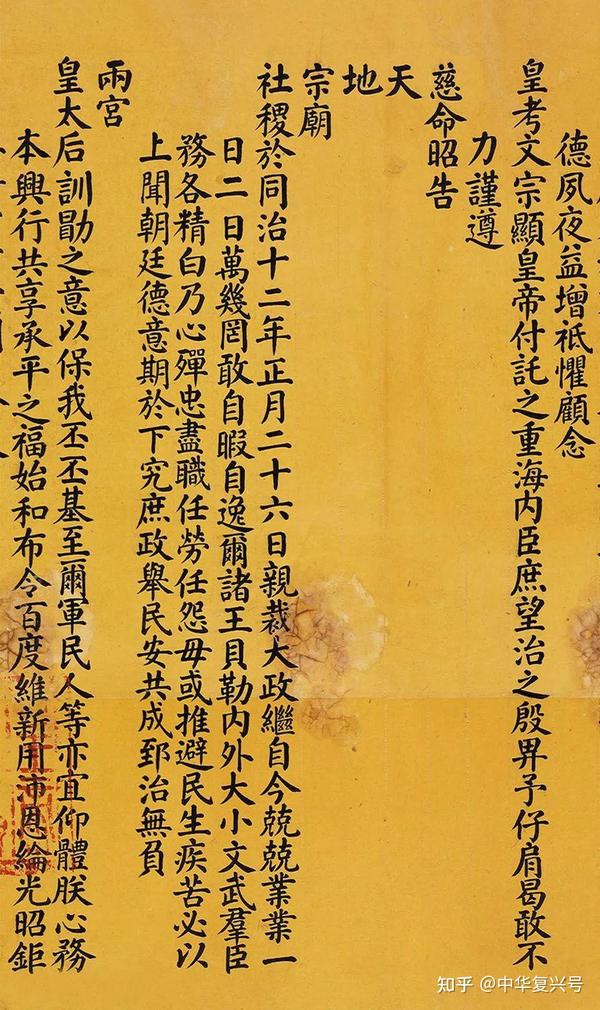 德夙夜益增祗懼顧念
皇考文宗顯皇帝付託之重海内臣庶望治之殷畀予仔肩曷敢不
力謹遵
慈命昭告
天
地
宗廟
社稷於同治十二年正月二十六日親裁大政繼自今兢兢業業一
日二日萬幾罔敢自暇自逸爾諸王貝勒内外大小文武羣臣
務各精白乃心殫忠盡職任勞任怨毋或推避民生疾苦必以
上聞朝廷德意期於下究庶政舉民安共成郅治無負
兩宮
皇太后訓勗之意以保我丕丕基至爾軍民人等亦宜仰體朕心務
本興行共享承平之福始和布令百度維新用沛恩綸光昭鉅
知乎 @中华复兴号